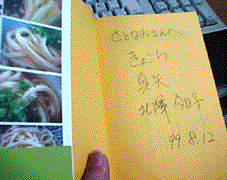 さとなおさんへ
きょうち
真矢
北澤 今日子
'99.8.12